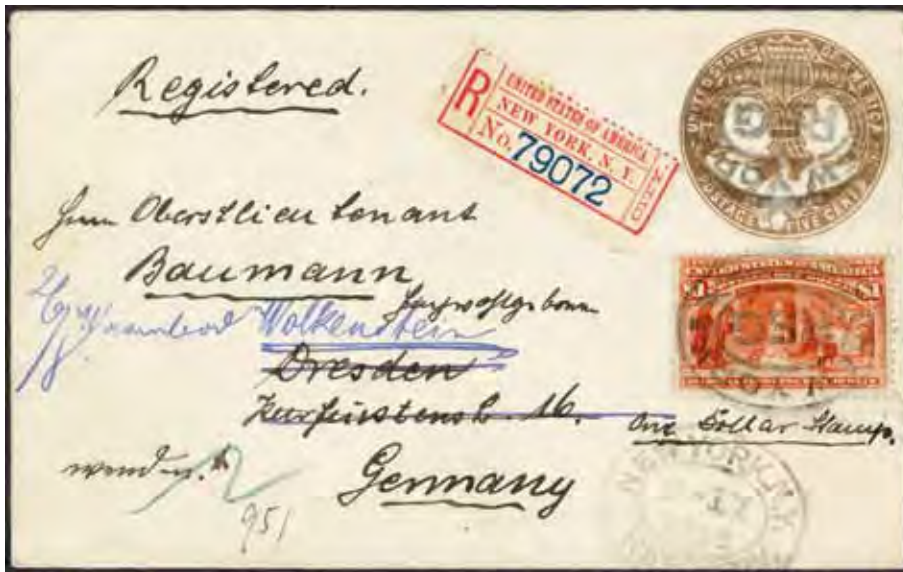 Registered.
R
UNITED STATES OF AMERICA.
NEW YORK, N. Y.
No. 79072
UNITED STATES OF AMERICA
POSTAGE FIVE CENTS
Herrn Oberstlieutenant
Baumann
Hochwohlgeboren
Wolkenstein
Dresden
Kurfürstenstr. 16.
$1
One Dollar Stamp.
wenden.
Germany
951
NEW YORK, N.Y.